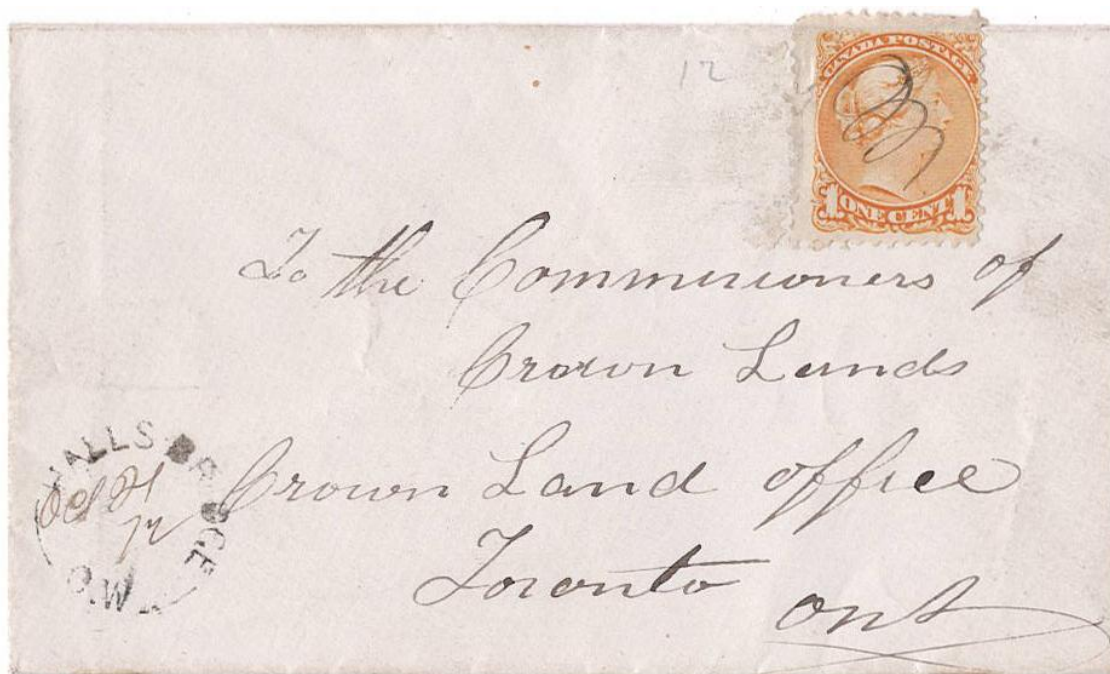 12
CANADA POSTAGE
1 ONE CENT 1
To the Commissioners of
Crown Lands
Crown Land office
Toronto
Ont
Oct 21
72
C.W